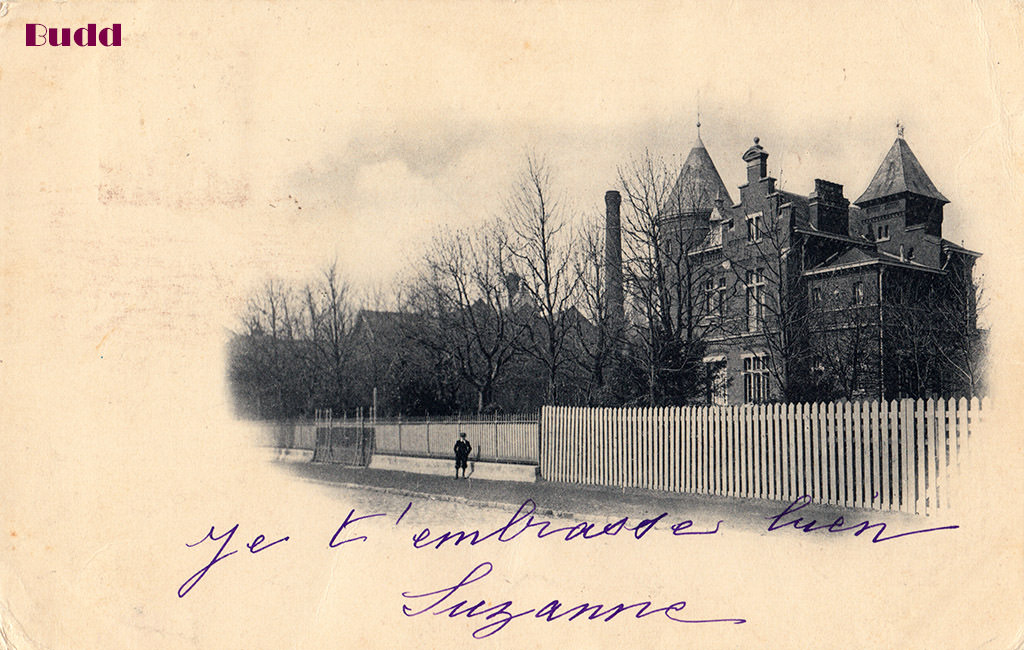 Budd
Je t'embrasse bien
Suzanne